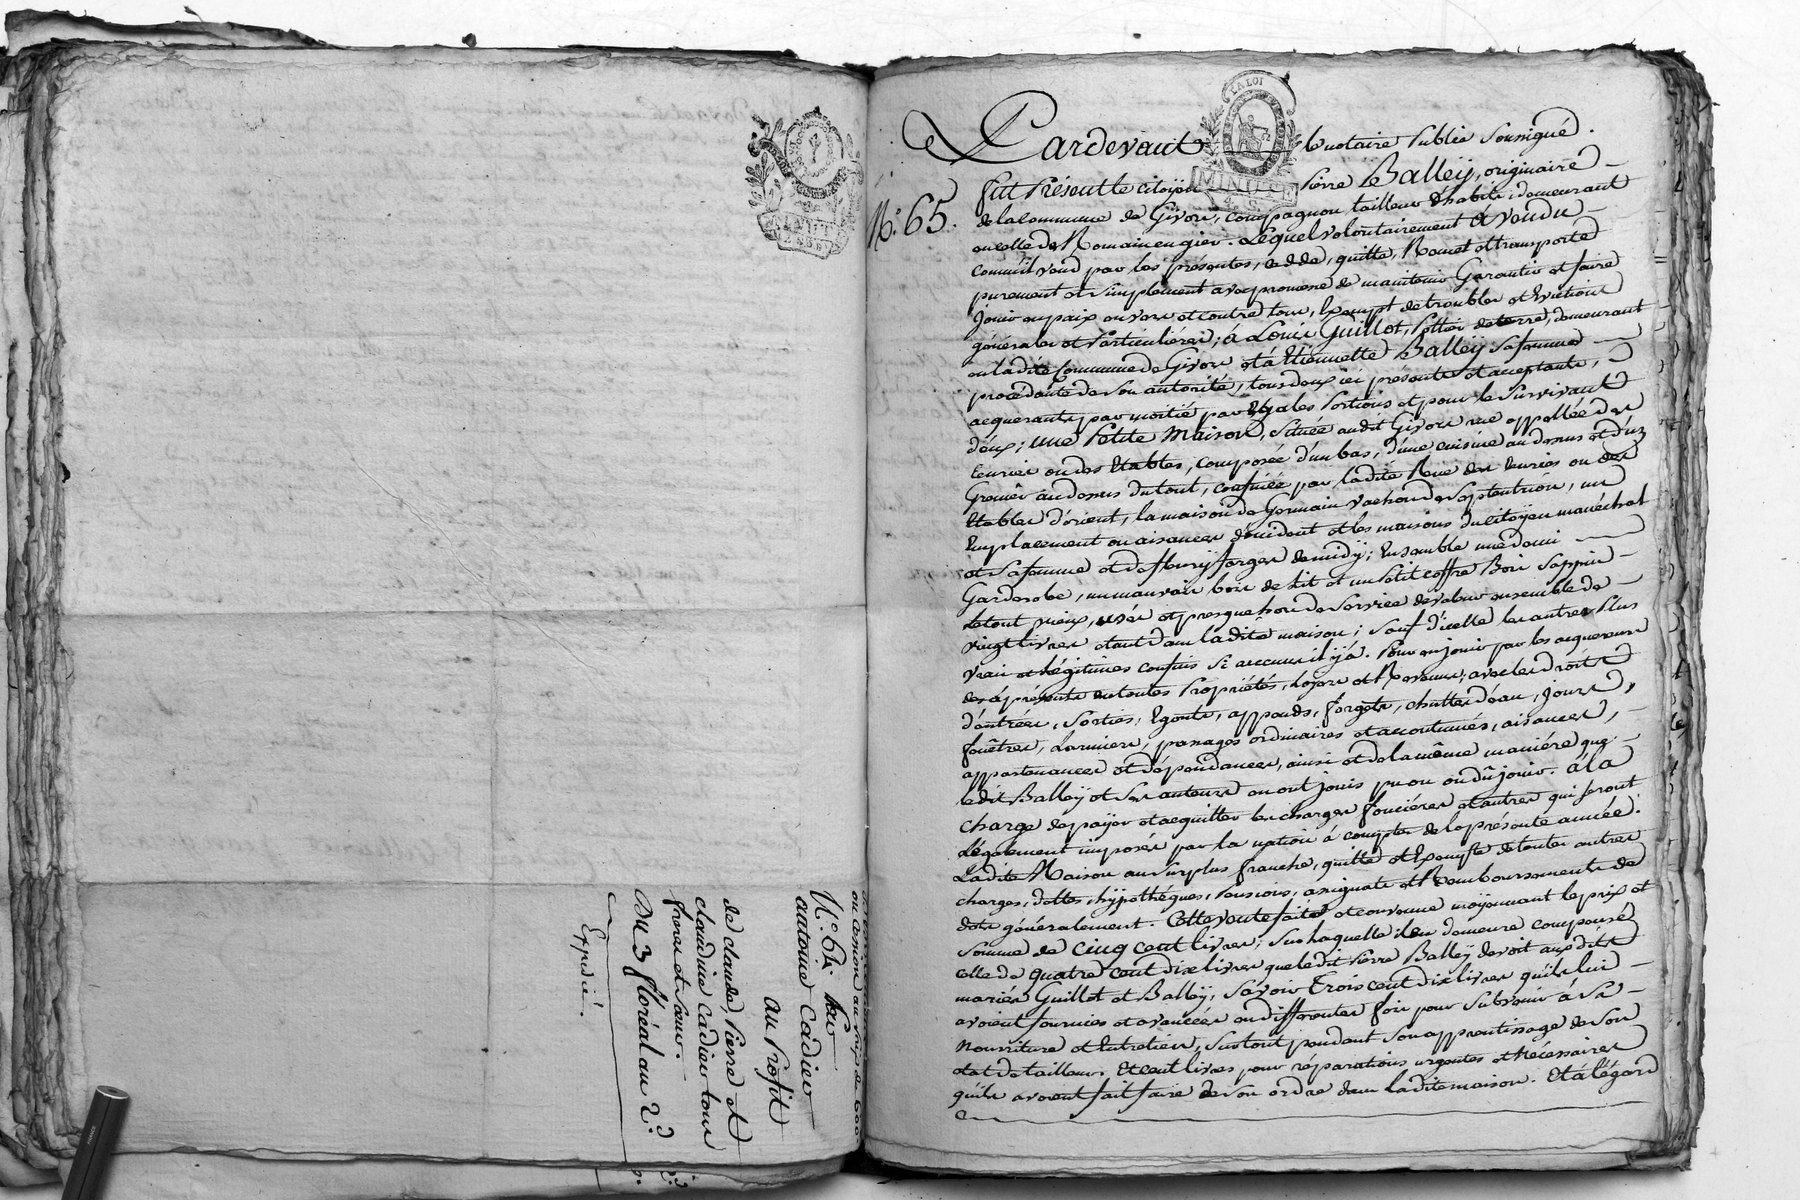 N.° 64 
antoine Cadier
au Profit
de claude, Pierre et
claudine Cadier tous
freres et sœurs.
Du 3 floréal an 2.d
Expedié.
LA LOI
MINUTE
4. S.
Pardevant le notaire Public Soussigné.
N.° 65.
fut Présent le citoyen Pierre Balleÿ, originaire
de la Commune de Givors, compagnon tailleur d'habits, demeurant
en celle de Romain en gier. Lequel volontairement A vendu
comm'il vend par les présentes, cedde, quitte, Remet et transporte
purement et simplement avec promesse de maintenir Garantir et faire
Jouir en paix envers et contre tous, Exempt de troubles et Evictions
générales et Particulières; à Louis Guillot, Pottier de terre, demeurant
en ladite Commune de Givors et à Etiennette Balleÿ Sa femme
procédante de Son autorité, tous deux ici présents et acceptants,
acquerants par moitié par Egales Portions et pour le Survivant
d'eux; une Petite Maison, Située audit Givors rue appellée des
Ecuries ou des Etables, composée d'un bas, d'une cuisine au dessus et d'un
Grenier au dessus du tout, confinée par ladite Rue des Ecuries ou des
Etables d'orient, la maison de Germain Vachon de Septentrion, un
Emplacement ou aisances d'occident et les maisons du citoyen maréchal
et Sa femme et de fleury forges de midÿ; Ensemble une demi
Garderobe, un mauvais bois de lit et un Petit coffre Bois Sappin
le tout vieux, usés et presque hors de Service de valeur ensemble de
vingt livres etant dans ladite maison; Sauf d'icelle les autres Plus
vrais et Légitimes confins Si aucuns il ÿ a. Pour en jouir par les acquereurs
dès à présent en toutes Propriétés, loyers et Revenus, avec les droits
d'entrées, Sorties, Egouts, appends, forgets, chuttes d'eau, jours,
fenêtres, Larmiers, passages ordinaires et accoutumés, aisances,
appartenances et dépendances, ainsi et de la même manière que
ledit Balleÿ et Ses auteurs en ont jouis pu ou en dû jouir. à la
charge de payer et acquitter les charges foncières et autres qui seront
Légalement imposées par la nation à compter de la présente année.
Ladite Maison au Surplus franche, quitte et Exempte de toutes autres
charges, dettes, hypothéques, Pensions, assignats et Remboursements de
dots généralement. Cette vente faite et convenue moyennant le prix et
Somme de cinq cent livres; Sur laquelle il en demeure compensé
celle de quatre cent dix livres que ledit Pierre Balleÿ devoit auxdits
mariés Guillot et Balleÿ, Savoir Trois cent dix livres qu'ils lui
avoient fournies et avancées en differentes fois pour Subvenir à Sa
nourriture et Entretien, Surtout pendant Son apprentissage de Son
état de tailleur. Et cent livres pour réparations urgentes et Nécessaires
qu'ils avoient fait faire de Son ordre dans ladite maison. Et à l'égard